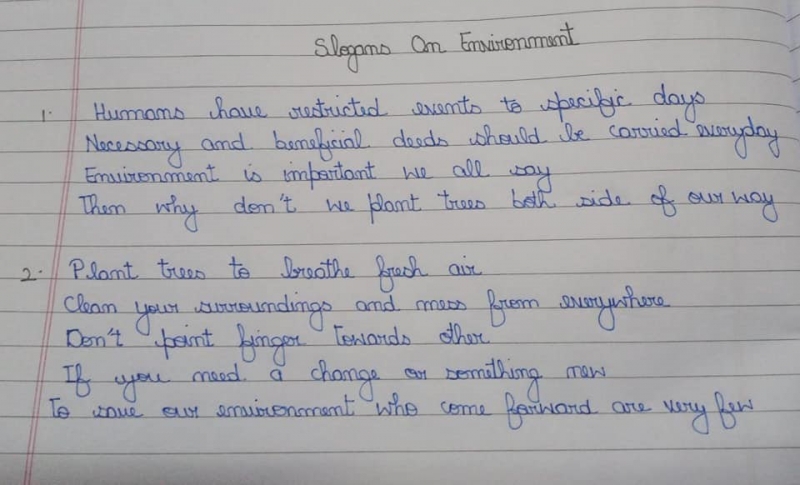 Slogans On Environment
1. Humans have restricted events to specific days
Necessary and beneficial deeds should be carried everyday
Environment is important we all say
Then why don't we plant trees both side of our way
2. Plant trees to breathe fresh air
Clean your surroundings and mess from everywhere
Don't point finger towards other
If you need a change or something new
To save our environment who come forward are very few